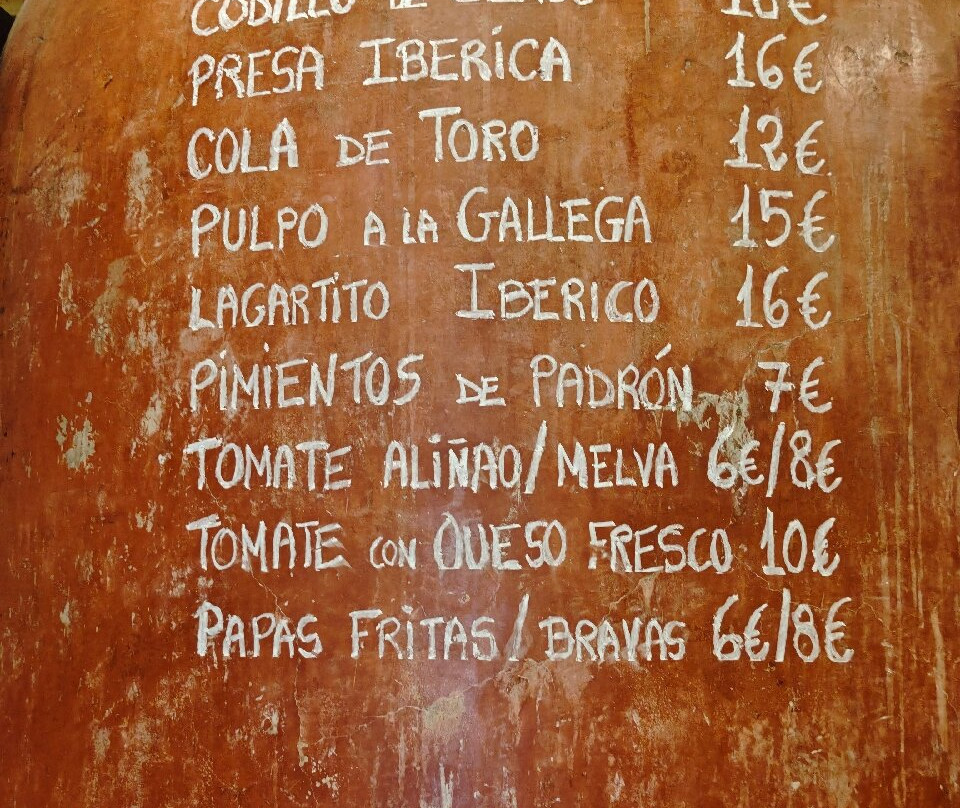 CODILLO DE
PRESA IBERICA 16€
COLA DE TORO 12€
PULPO A LA GALLEGA 15€
LAGARTITO IBERICO 16€
PIMIENTOS DE PADRÓN 7€
TOMATE ALIÑAO/MELVA 6€/8€
TOMATE CON QUESO FRESCO 10€
PAPAS FRITAS/BRAVAS 6€/8€